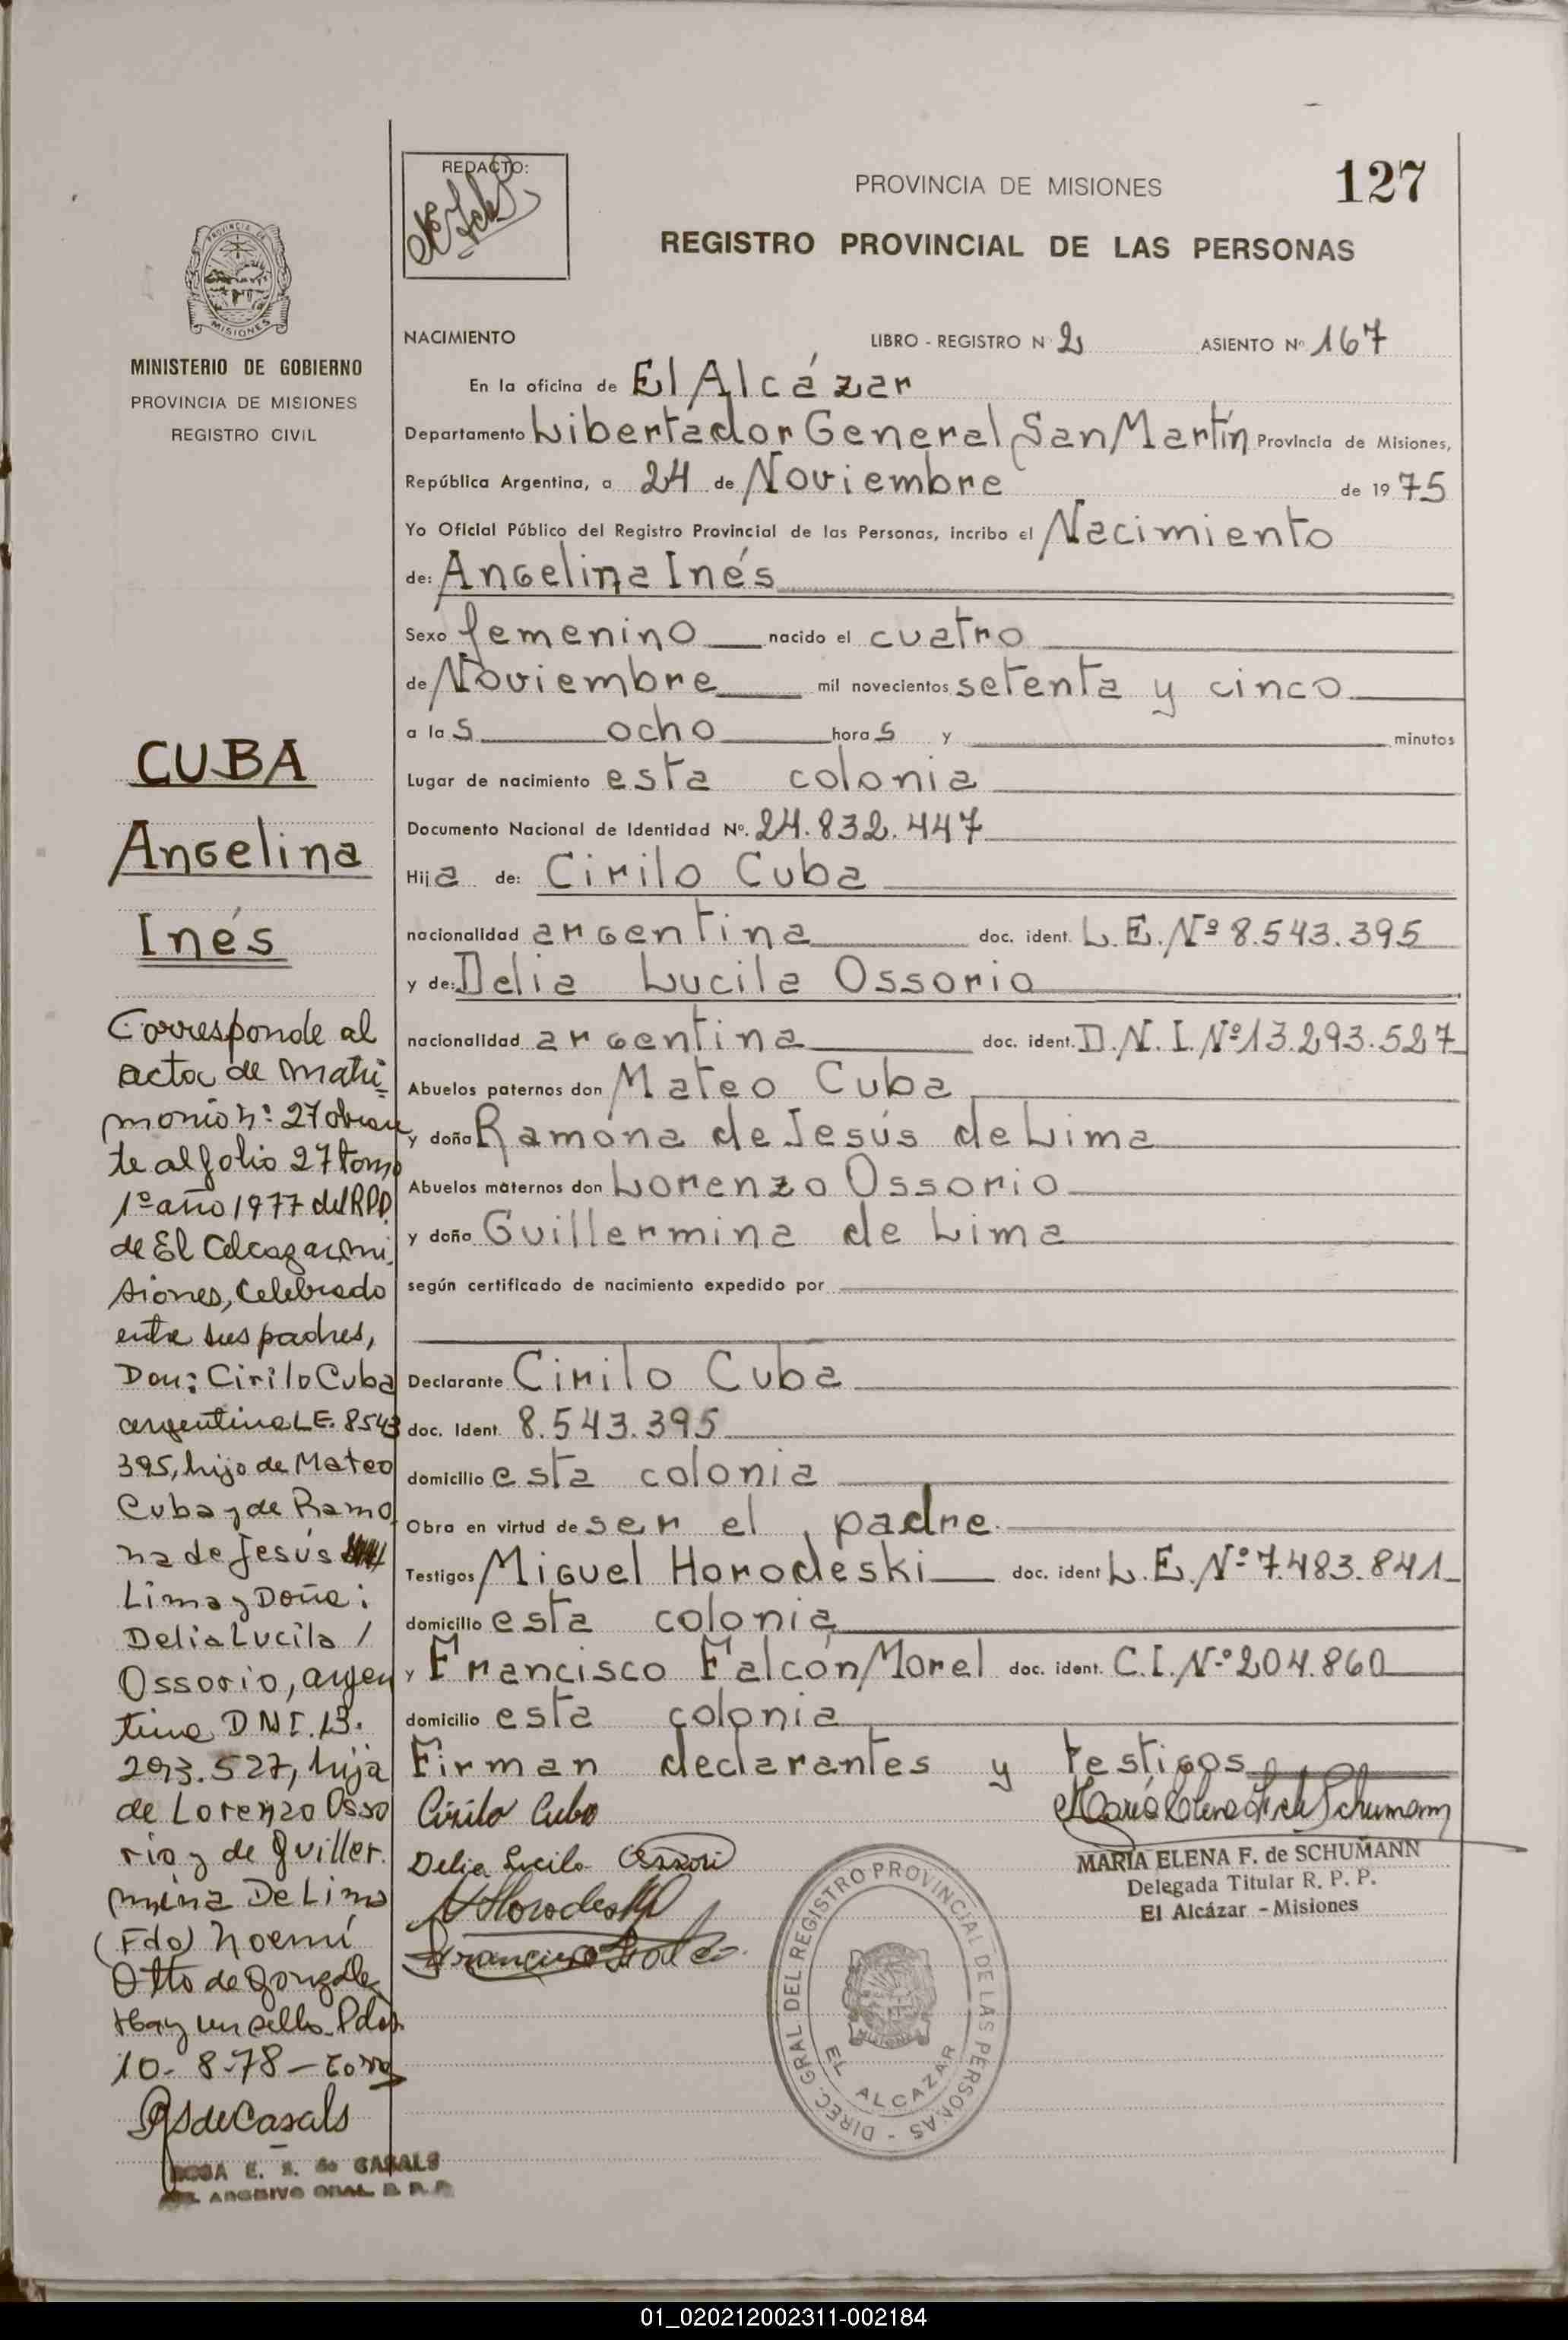 127
REDACTO:
PROVINCIA DE MISIONES
REGISTRO PROVINCIAL DE LAS PERSONAS
PROVINCIA DE
MISIONES
MINISTERIO DE GOBIERNO
PROVINCIA DE MISIONES
REGISTRO CIVIL
NACIMIENTO LIBRO - REGISTRO N 2 ASIENTO Nº 167
En la oficina de El Alcázar
Departamento Libertador General San Martín Provincia de Misiones,
República Argentina, a 24 de Noviembre de 19 75
Yo Oficial Público del Registro Provincial de las Personas, incribo el Nacimiento
de: Angelina Inés
Sexo femenino nacido el cuatro
de Noviembre mil novecientos setenta y cinco
a las ocho horas y minutos
Lugar de nacimiento esta colonia
Documento Nacional de Identidad Nº. 24.832.447
Hija de: Cirilo Cuba
nacionalidad argentina doc. ident. L.E. Nº 8.543.395
y de: Delia Lucila Ossorio
nacionalidad argentina doc. ident. D.N.I. Nº 13.293.527
Abuelos paternos don Mateo Cuba
y doña Ramóna de Jesús de Lima
Abuelos maternos don Lorenzo Ossorio
y doña Guillermina de Lima
según certificado de nacimiento expedido por
Declarante Cirilo Cuba
doc. Ident. 8.543.395
domicilio esta colonia
Obra en virtud de ser el padre
Testigos Miguel Horodeski doc. ident L.E. Nº 7.483.841
domicilio esta colonia
y Francisco Falcón Morel doc. ident. C.I. Nº 204.860
domicilio esta colonia
Firman declarantes y testigos
Cirilo Cuba
Delia Lucila Ossori
Horodeski
Francisco
María Elena F. de Schumann
MARIA ELENA F. de SCHUMANN
Delegada Titular R. P. P.
El Alcázar - Misiones
DIREC. GRAL DEL REGISTRO PROVINCIAL DE LAS PERSONAS
MISIONES
EL ALCAZAR
CUBA
Angelina
Inés
Corresponde al
acta de matri
monio nº 27 obran
te al folio 27 tomo
1º año 1977 del RPP.
de El Alcazar, mi
siones, Celebrado
entre sus padres,
Don: Cirilo Cuba
argentino L.E. 8543
395, hijo de Mateo
Cuba y de Ramo
na de Jesús
Lima y Doña:
Delia Lucila /
Ossorio, argen
tina DNI. 13.
293.527, hija
de Lorenzo Osso
rio y de Guiller.
mina De Lima
(Fdo) Noemí
Otto de Gonzalez
Hay un sello. Pdas
10-8-78 -
RS de Casals
ROSA E. S. de CASALS
ARCHIVO GRAL. R. P. P.
01_020212002311-002184